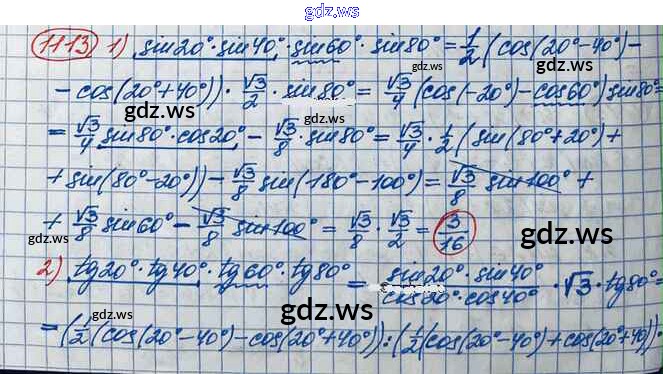 gdz.ws
1113 1) sin20°·sin40°·sin60°·sin80° = 1/2 (cos(20°-40°) -
- cos(20°+40°))·√3/2·sin80° = √3/4 (cos(-20°) - cos60°) sin80° =
gdz.ws
gdz.ws
= √3/4 sin80°·cos20° - √3/8·sin80° = √3/4·1/2 (sin(80°+20°) +
+ sin(80°-20°)) - √3/8 sin(180°-100°) = √3/8 sin100° +
+ √3/8 sin60° - √3/8 sin100° = √3/8·√3/2 = 3/16
gdz.ws
gdz.ws
2) tg20°·tg40°·tg60°·tg80° = sin20°·sin40°/cos20°·cos40°·√3·tg80° =
gdz.ws
= (1/2 (cos(20°-40°) - cos(20°+40°)) : (1/2 (cos(20°-40°) + cos(20°+40°))·